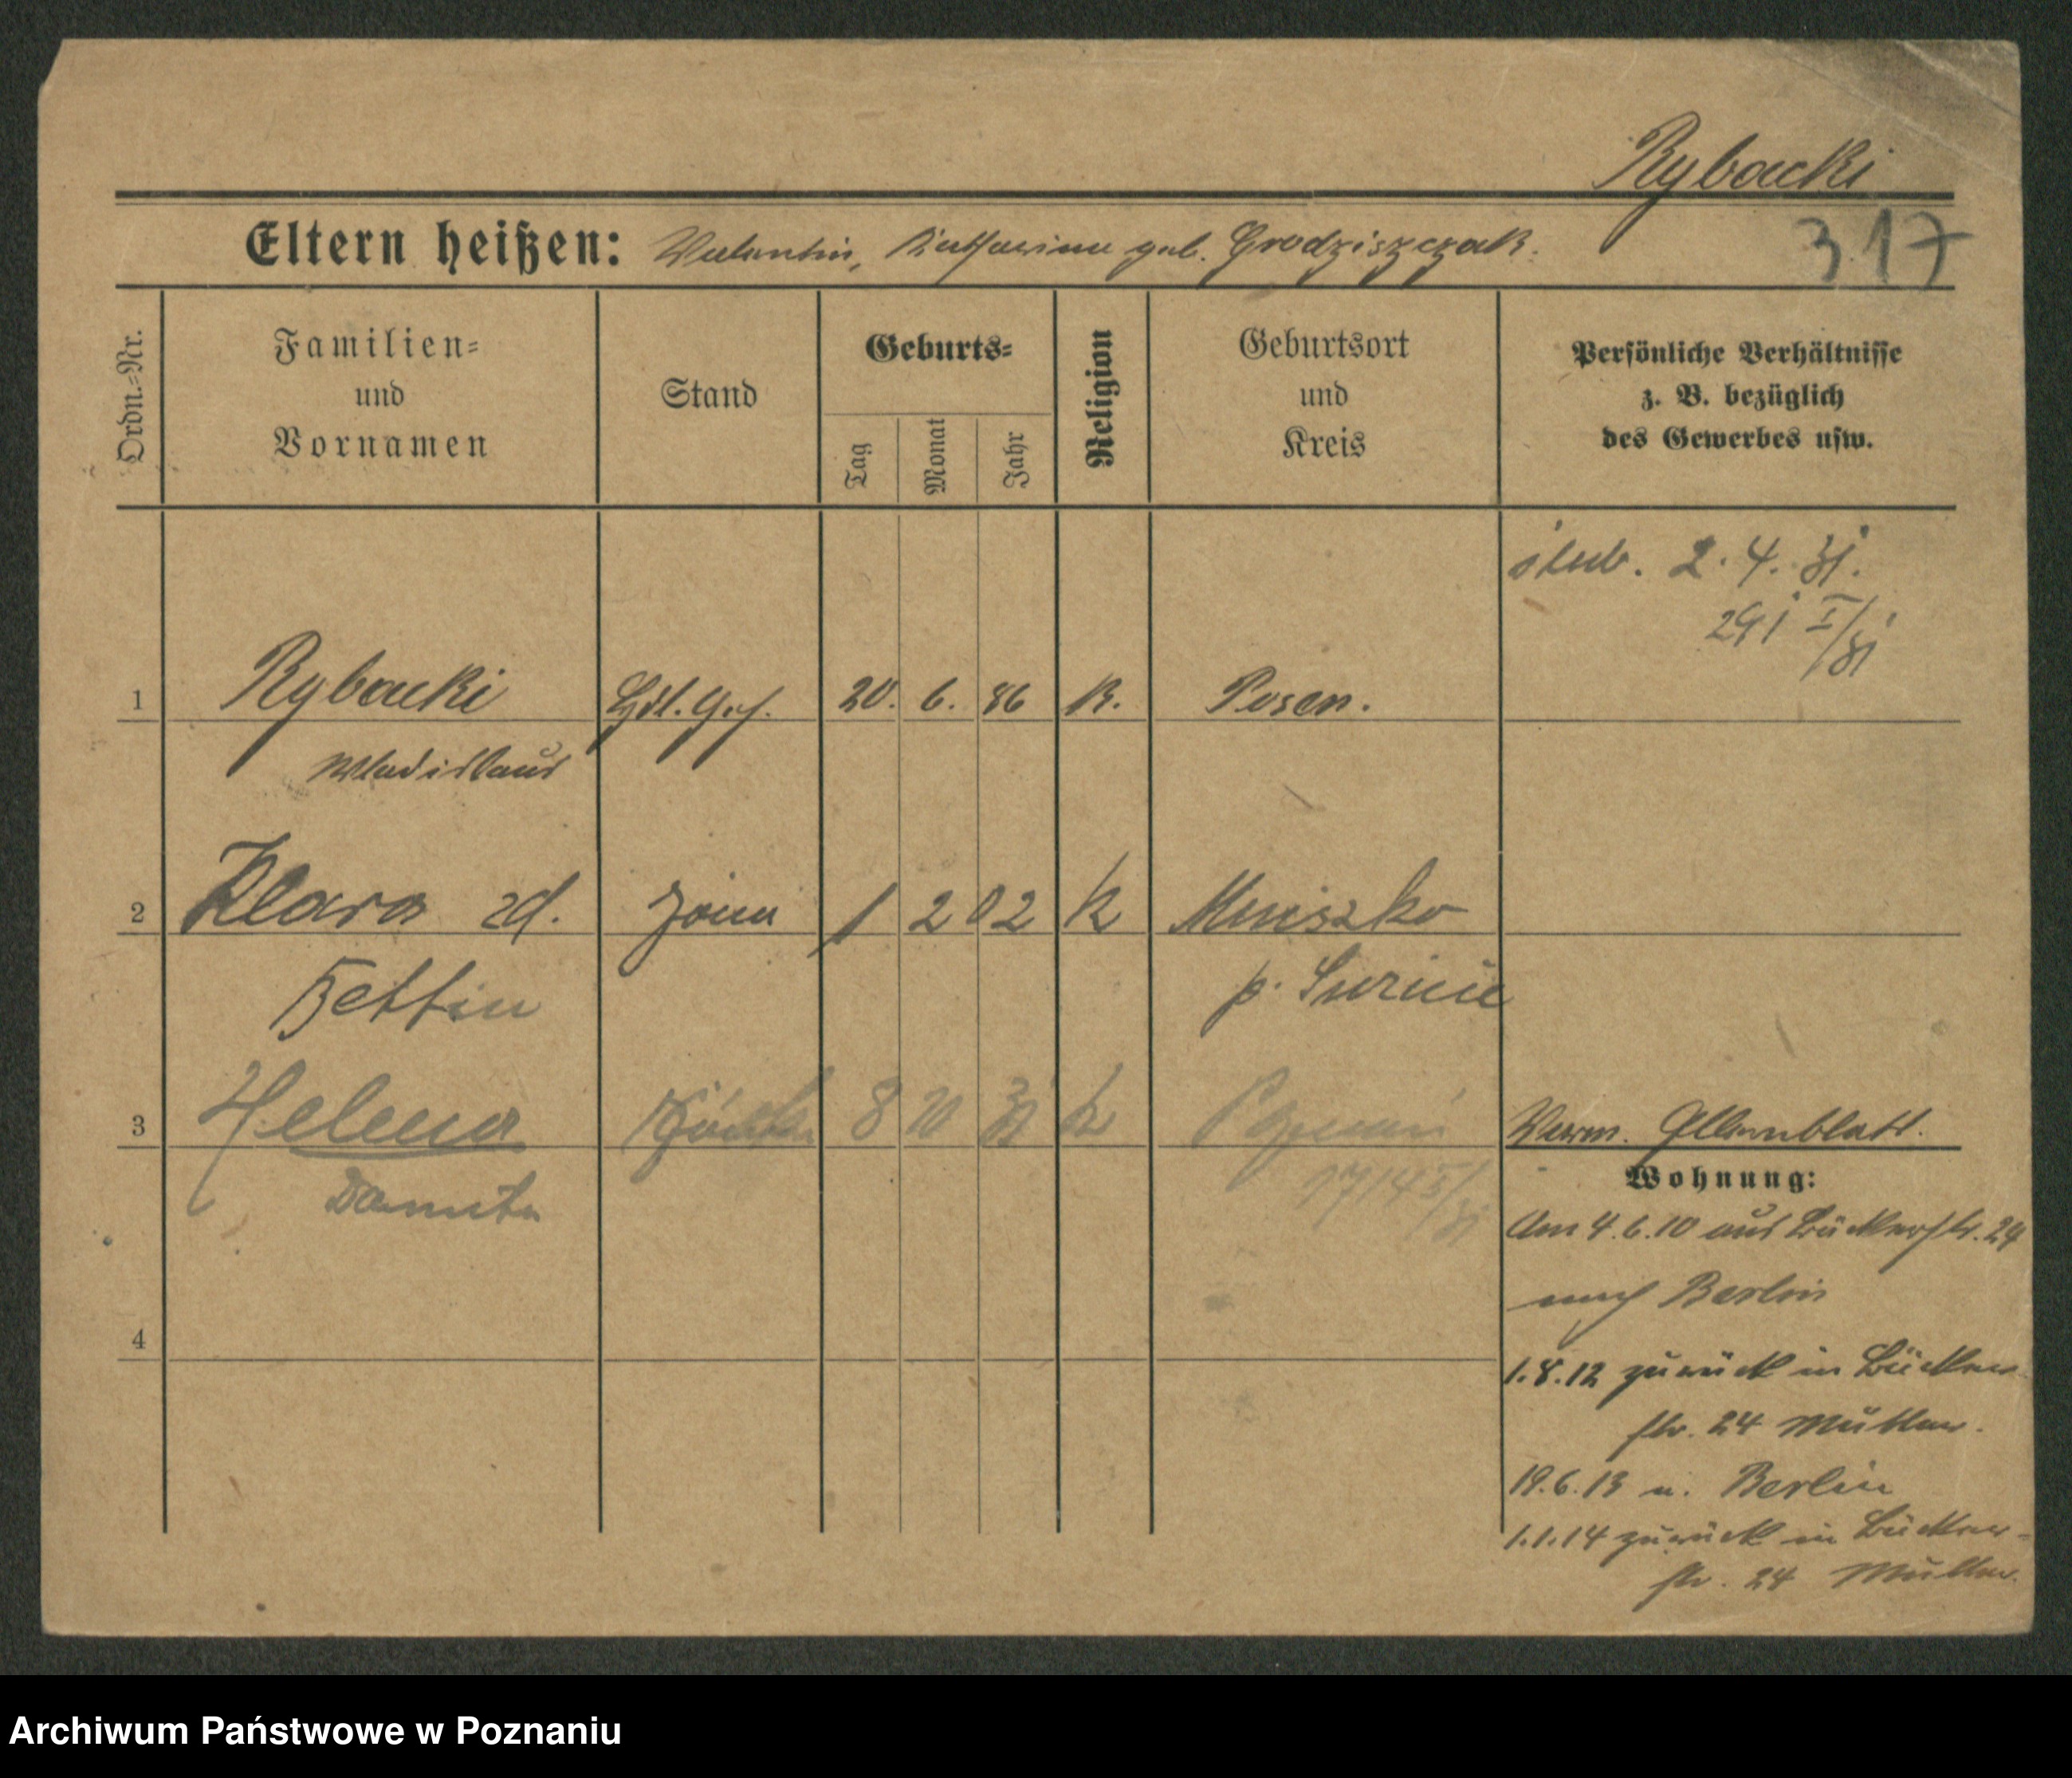 Rybacki
317
Eltern heißen: Valentin, Katharina geb. Grodziszczak.
Ordn.-Nr.
Familien-
und
Vornamen
Stand
Geburts-
Tag
Monat
Jahr
Religion
Geburtsort
und
Kreis
Persönliche Verhältnisse
z. B. bezüglich
des Gewerbes usw.
ślub. 2. 4. 31.
291 I/31
1 Rybacki Hdl. Geh. 20. 6. 86 K. Posen.
Wladislaus
2 Klara zd. żona 1 2 02 K
Bettin
3 Helena córka 8 10 31 K Poznań
Danuta
1714
Verm. Elternblatt.
Wohnung:
Am 4. 6. 10 aus Bückerstr. 24
nach Berlin
4
1. 8. 12 zurück in
str. 24 Mutter.
19. 6. 13 n. Berlin
1. 1. 14 zurück in
str. 24 Mutter.
Archiwum Państwowe w Poznaniu